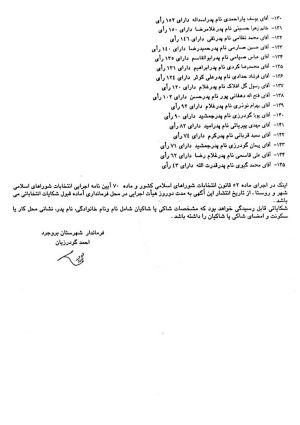 ۱۳۰- آقای یوسف یاراحمدی نام پدراسداله دارای ۱۵۲ رأی
۱۳۱- خانم زهرا حسینی نام پدرغلامرضا دارای ۱۵۰ رأی
۱۳۲- آقای محمد نظامی نام پدرتقی دارای ۱۴۶ رأی
۱۳۳- آقای حسن صارمی نام پدرحمیدرضا دارای ۱۴۰ رأی
۱۳۴- آقای عباس صیامی نام پدرابوالقاسم دارای ۱۳۵ رأی
۱۳۵- آقای محمدرضا کردی نام پدرابراهیم دارای ۱۳۱ رأی
۱۳۶- آقای فرشاد حدادی نام پدرعلی کوثر دارای ۱۲۴ رأی
۱۳۷- آقای رسول گل افلاک نام پدرغلام دارای ۱۲۰ رأی
۱۳۸- آقای فتح اله دهقانی پور نام پدرحسن دارای ۱۰۲ رأی
۱۳۹- آقای بهرام نوذری نام پدرغلام دارای ۹۲ رأی
۱۴۰- آقای پویا گودرزی نام پدرجمشید دارای ۹۰ رأی
۱۴۱- آقای مهدی بیریائی نام پدرامید دارای ۸۲ رأی
۱۴۲- آقای سعید قربانی نام پدرکرم دارای ۷۴ رأی
۱۴۳- آقای پیمان گودرزی نام پدرجمشید دارای ۷۱ رأی
۱۴۴- آقای علی قاسمی نام پدرغلام رضا دارای ۶۱ رأی
۱۴۵- آقای محمد گیوی نام پدرقدرت الله دارای ۴۳ رأی
اینک در اجرای ماده ۵۲ قانون انتخابات شوراهای اسلامی کشور و ماده ۷۰ آیین نامه اجرایی انتخابات شوراهای اسلامی
شهر و روستا ، از تاریخ انتشار این آگهی به مدت دوروز هیأت اجرایی در محل فرمانداری آماده قبول شکایات انتخاباتی می
باشد .
شکایاتی قابل رسیدگی خواهد بود که مشخصات شاکی یا شاکیان شامل نام ونام خانوادگی، نام پدر، نشانی محل کار یا
سکونت و امضای شاکی یا شاکیان را داشته باشد .
فرماندار شهرستان بروجرد
احمد گودرزیان